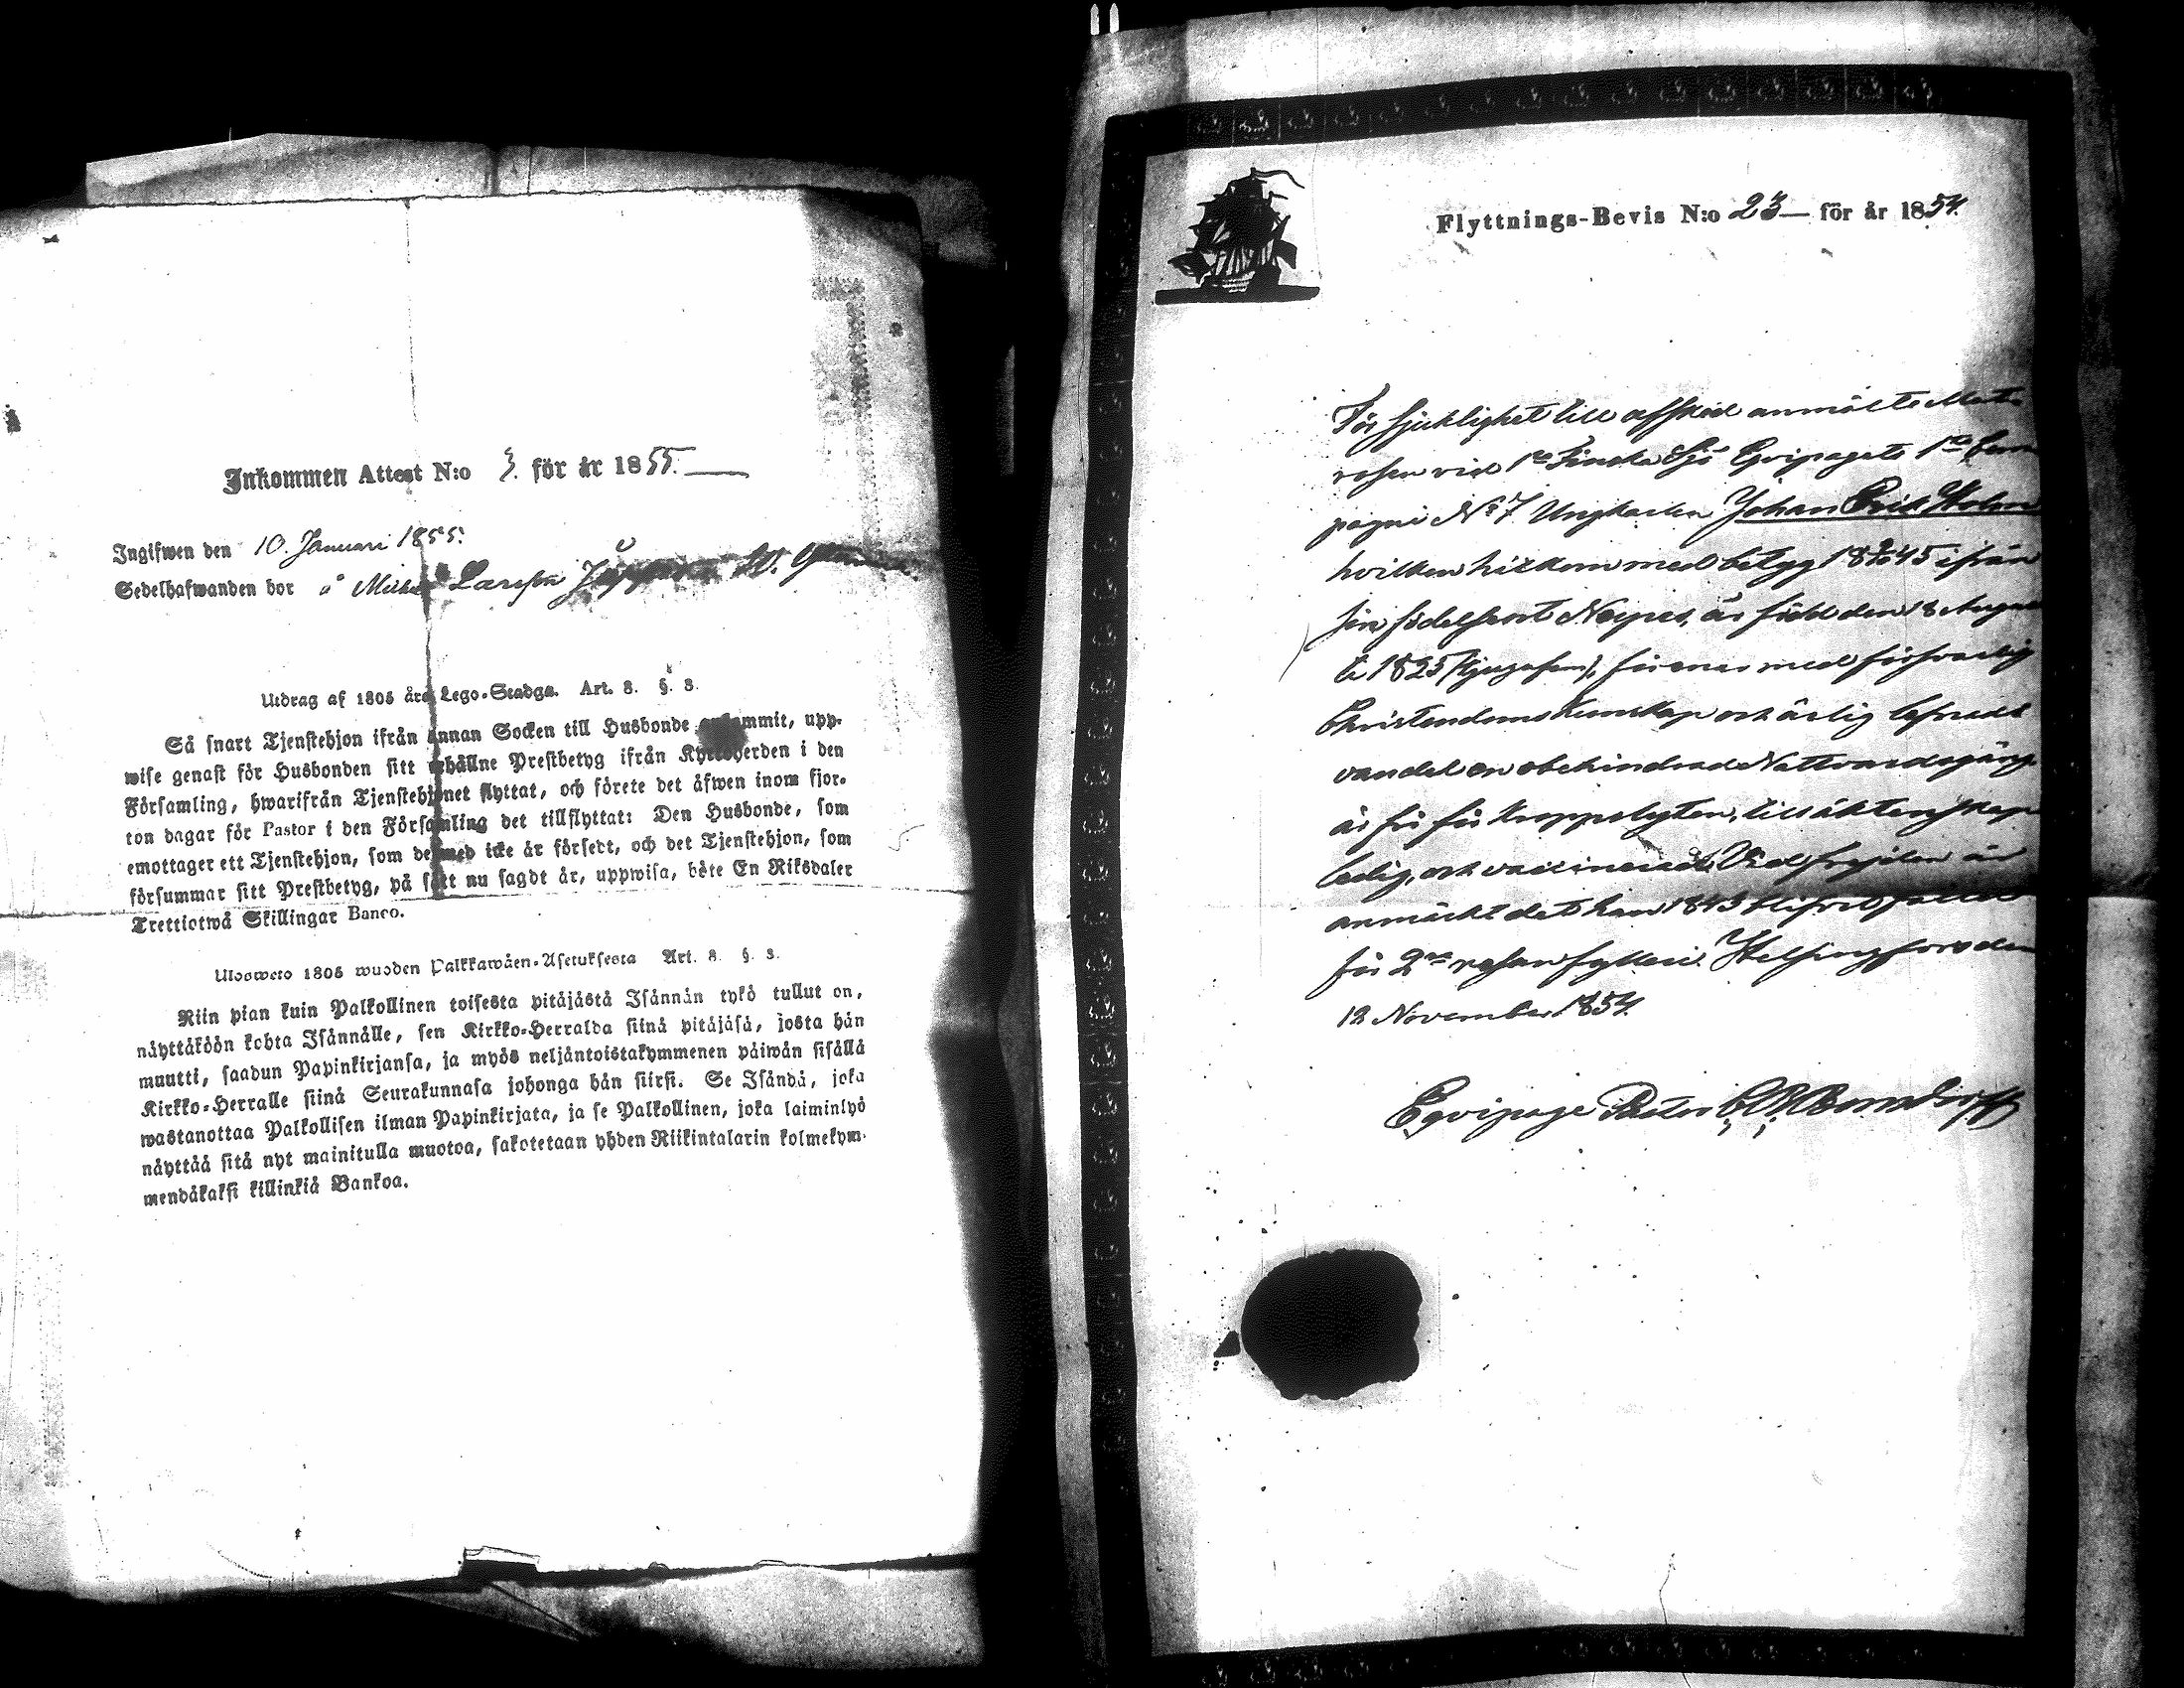 Inkommen Attest N:o 3. för år 1855.
Ingifwen den 10. Januari 1855.
Sedelhafwanden bor å Lars
Utdrag af 1805 års Lego-Stadga. Art. 8. §. 3.
Så snart Tjenstehjon ifrån annan Socken till Husbonde ankommit, upp-
wise genast för Husbonden sitt erhållne Prestbetyg ifrån Kyrkoherden i den
Församling, hwarifrån Tjenstehjonet flyttat, och förete det äfwen inom fjor-
ton dagar för Pastor i den Församling det tillflyttat: Den Husbonde, som
emottager ett Tjenstehjon, som dermed icke är försedt, och det Tjenstehjon, som
försummar sitt Prestbetyg, på sätt nu sagdt är, uppwisa, böte En Riksdaler
Trettiotwå Skillingar Banco.
Ulosweto 1805 wuoden Palkkawäen-Asetuksesta Art. 8. §. 3.
Niin pian kuin Palkollinen toisesta pitäjästä Isännän tykö tullut on,
näyttäköön kohta Isännälle, sen Kirkko-Herralda siinä pitäjäsä, josta hän
muutti, saadun Papinkirjansa, ja myös neljäntoistakymmenen päiwän sisällä
Kirkko-Herralle siinä Seurakunnasa johonga hän siirsi. Se Isändä, joka
wastanottaa Palkollisen ilman Papinkirjata, ja se Palkollinen, joka laiminlyö
näyttää sitä nyt mainitulla muotoa, sakotetaan yhden Riikintalarin kolmekym-
mendäkaksi killinkiä Bankoa.
Flyttnings-Bevis N:o 23 för år 1854.
För sjuklighet till afsked anmälte Mat-
rosen vid 1a Finska Sjö Eqvipagets 1a Com
pagni No 7 Ungkarlen Johan Erik Holm
hvilken hitkom med betyg 18 45 ifrån
sin födelseort Nagu, är född den 18 Augus
ti 1825 (tjugufem), förenar med försvarlig
Christendoms Kunskap och ärlig befrade
vandel en obehindrad Nattvardsgång
är fri för kroppslyten, till äktenskap
ledig, och vaccinerad. Vid frejden är
anmärkt det han 1843 blifvit fälld
för 2ra resan fylleri. Helsingfors den
12 November 1854.
Eqvipage Pastor